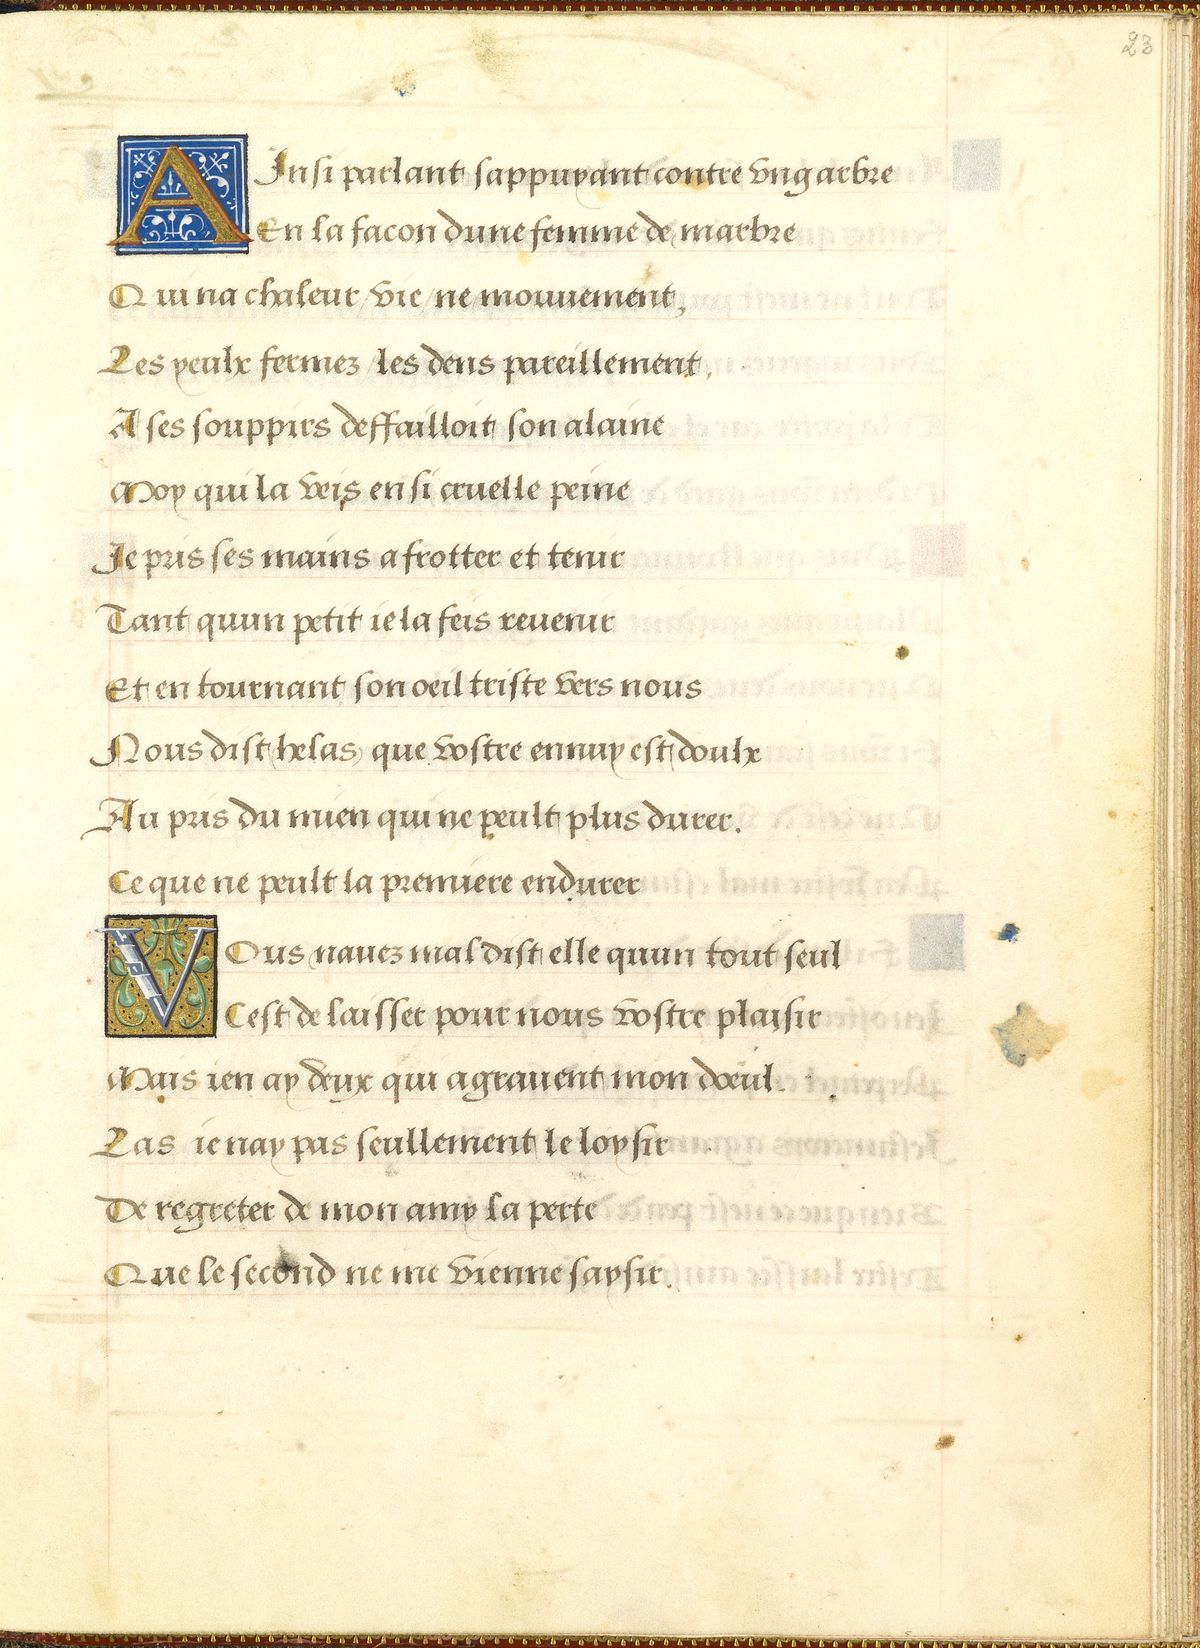 23
AInsi parlant sappuyant contre vng arbre
En la facon dune femme de marbre
Qui na chaleur / vie / ne mouuement,
Les yeulx fermez les dens pareillement,
A ses souppirs deffailloit son alaine
Moy qui la veis en si cruelle peine
Je pris ses mains a frotter et tenir
Tant quun petit ie la feis reuenir
Et en tournant son oeil triste vers nous
Nous dist helas que vostre ennuy est doulx
Au pris du mien qui ne peult plus durer.
Ce que ne peult la premiere endurer
VOus nauez mal dist elle quun tout seul
Cest de laisser pour nous vostre plaisir
Mais ien ay deux qui agrauent mon doeul.
Las ie nay pas seullement le loysir
De regreter de mon amy la perte
Que le second ne me vienne saysir.